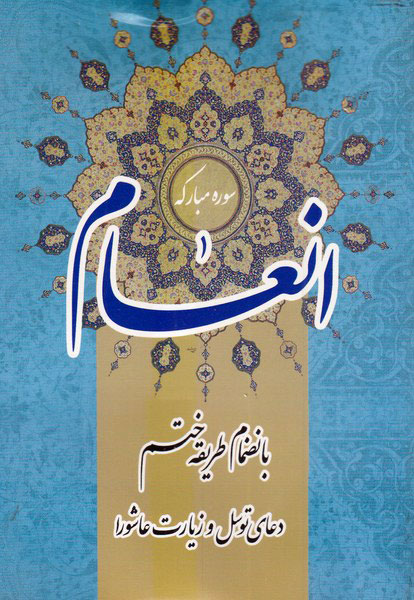 سوره مبارکه
انعام
بانضمام طریقه ختم
دعای توسل و زیارت عاشورا